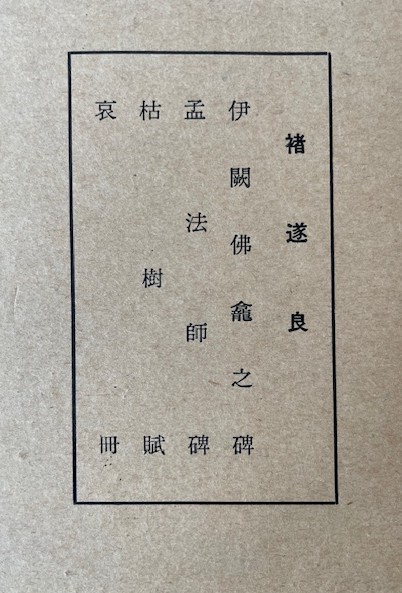 褚遂良
伊闕佛龕之碑
孟法師碑
枯樹賦
哀冊